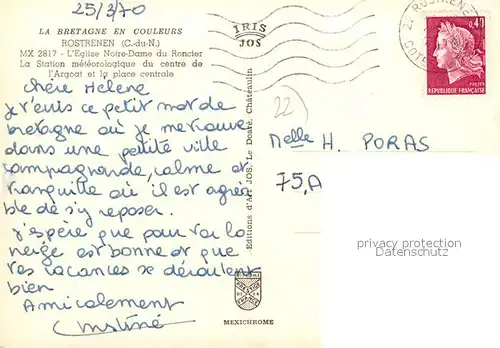 25/3/70
LA BRETAGNE EN COULEURS
ROSTRENEN (C.-du-N.)
MX 2817 - L'Eglise Notre-Dame du Roncier
La Station météorologique du centre de
l'Argoat et la place centrale
IRIS
JOS
22 ROSTRENEN
0,40
POSTES
REPUBLIQUE FRANÇAISE
chère Hélène
Je t'écris ce petit mot de
bretagne où je me trouve
dans une petite ville
campagnarde, calme et
tranquille où il est agréa
ble de s'y reposer.
J'espère que pour toi la
neige est bonne et que
tes vacances se déroulent
bien
Amicalement
Christine
Editions d'Art JOS, Le Doaré, Châteaulin
22
Melle H. PORAS
75,A
privacy protection
Datenschutz
MEXICHROME